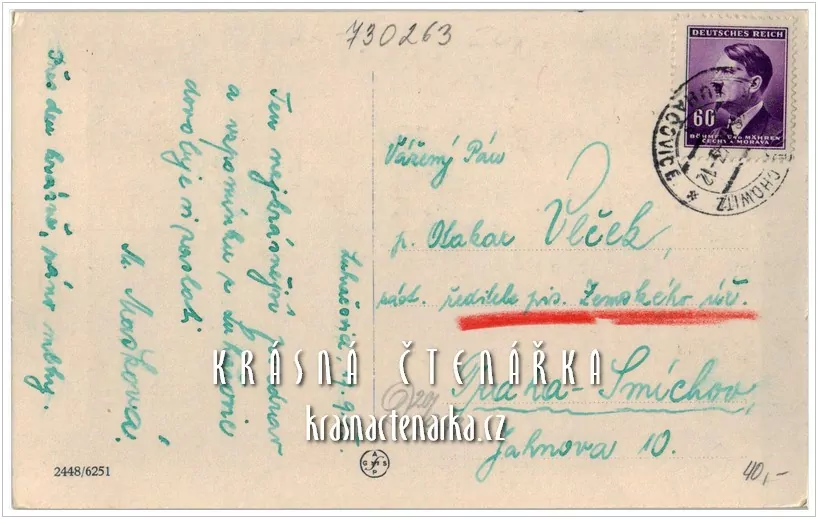 730263
DEUTSCHES REICH
60
BÖHMEN UND MÄHREN
ČECHY A MORAVA
LUHAČOVICE
CHOWITZ
Vážený Pán
p. Otakar Vlček,
ředitele pis. Zemského úř.
Praha-Smíchov,
Jahnova 10.
Ten nejkrásnější pozdrav
a vzpomínku z Luhačovic
dovoluje si zaslati
M. Mašková.
Přes den krásně, ráno mlhy.
KRÁSNÁ ČTENÁŘKA
krasnactenarka.cz
2448/6251
40,-